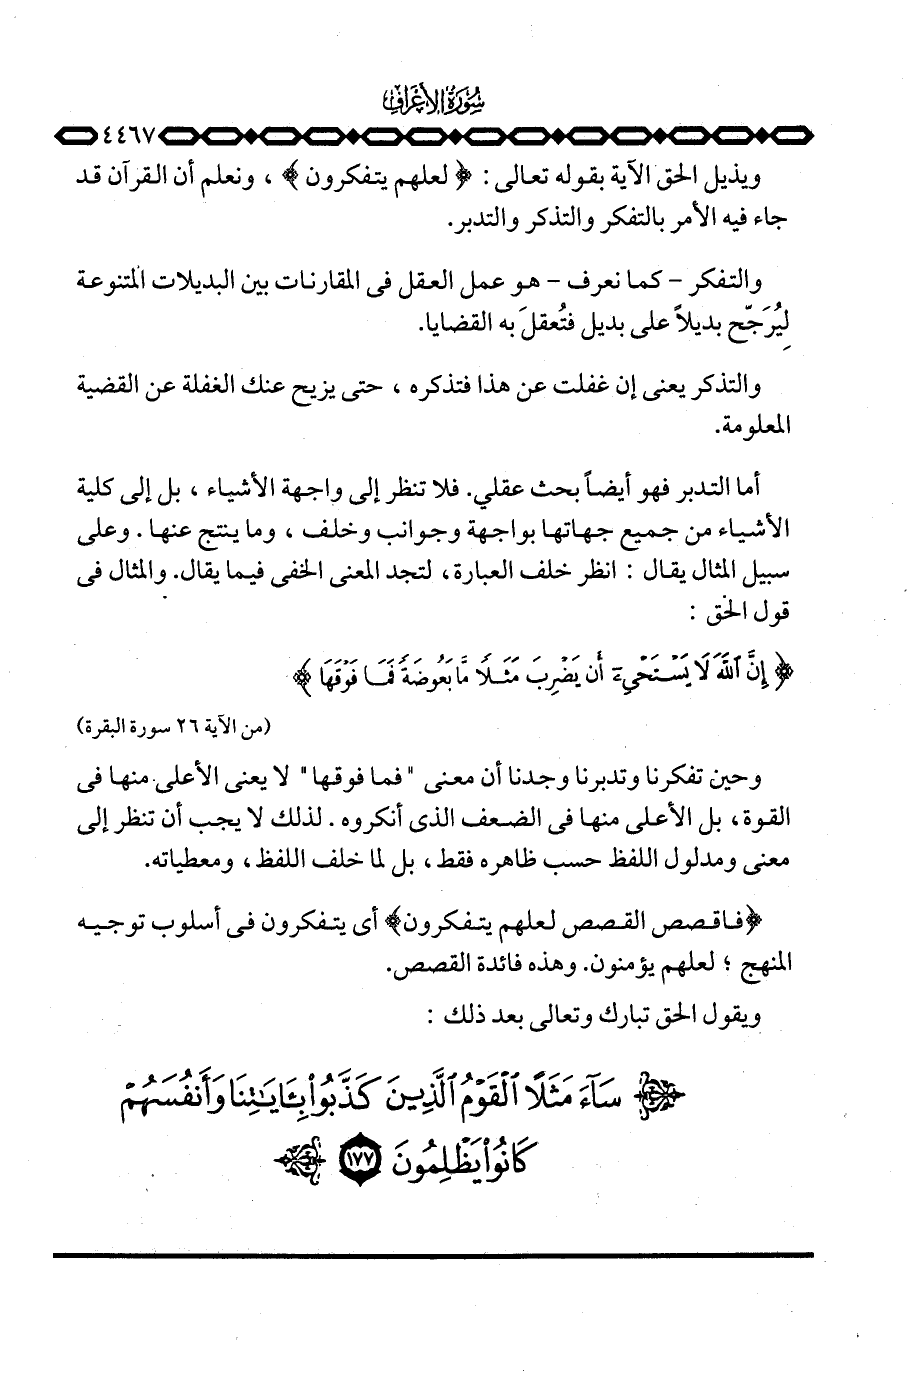 سورة الأعراف
٤٤٦٧
ويذيل الحق الآية بقوله تعالى : ﴿ لعلهم يتفكرون ﴾ ، ونعلم أن القرآن قد
جاء فيه الأمر بالتفكر والتذكر والتدبر.
والتفكر - كما نعرف - هو عمل العقل فى المقارنات بين البديلات المتنوعة
لِيُرَجّح بديلاً على بديل فتُعقلَ به القضايا.
والتذكر يعنى إن غفلت عن هذا فتذكره ، حتى يزيح عنك الغفلة عن القضية
المعلومة.
أما التدبر فهو أيضاً بحث عقلي. فلا تنظر إلى واجهة الأشياء ، بل إلى كلية
الأشياء من جميع جهاتها بواجهة وجوانب وخلف ، وما ينتج عنها . وعلى
سبيل المثال يقال : انظر خلف العبارة، لتجد المعنى الخفى فيما يقال. والمثال فى
قول الحق :
﴿ إِنَّ ٱللَّهَ لَا يَسْتَحْيِۦٓ أَن يَضْرِبَ مَثَلًا مَّا بَعُوضَةً فَمَا فَوْقَهَا ﴾
(من الآية ٢٦ سورة البقرة)
وحين تفكرنا وتدبرنا وجدنا أن معنى "فما فوقها" لا يعنى الأعلى منها فى
القوة، بل الأعلى منها فى الضعف الذى أنكروه . لذلك لا يجب أن تنظر إلى
معنى ومدلول اللفظ حسب ظاهره فقط، بل لما خلف اللفظ، ومعطياته.
﴿فاقصص القصص لعلهم يتفكرون﴾ أى يتفكرون فى أسلوب توجيه
المنهج ؛ لعلهم يؤمنون. وهذه فائدة القصص.
ويقول الحق تبارك وتعالى بعد ذلك :
سَآءَ مَثَلًا ٱلْقَوْمُ ٱلَّذِينَ كَذَّبُوا۟ بِـَٔايَـٰتِنَا وَأَنفُسَهُمْ
كَانُوا۟ يَظْلِمُونَ ١٧٧